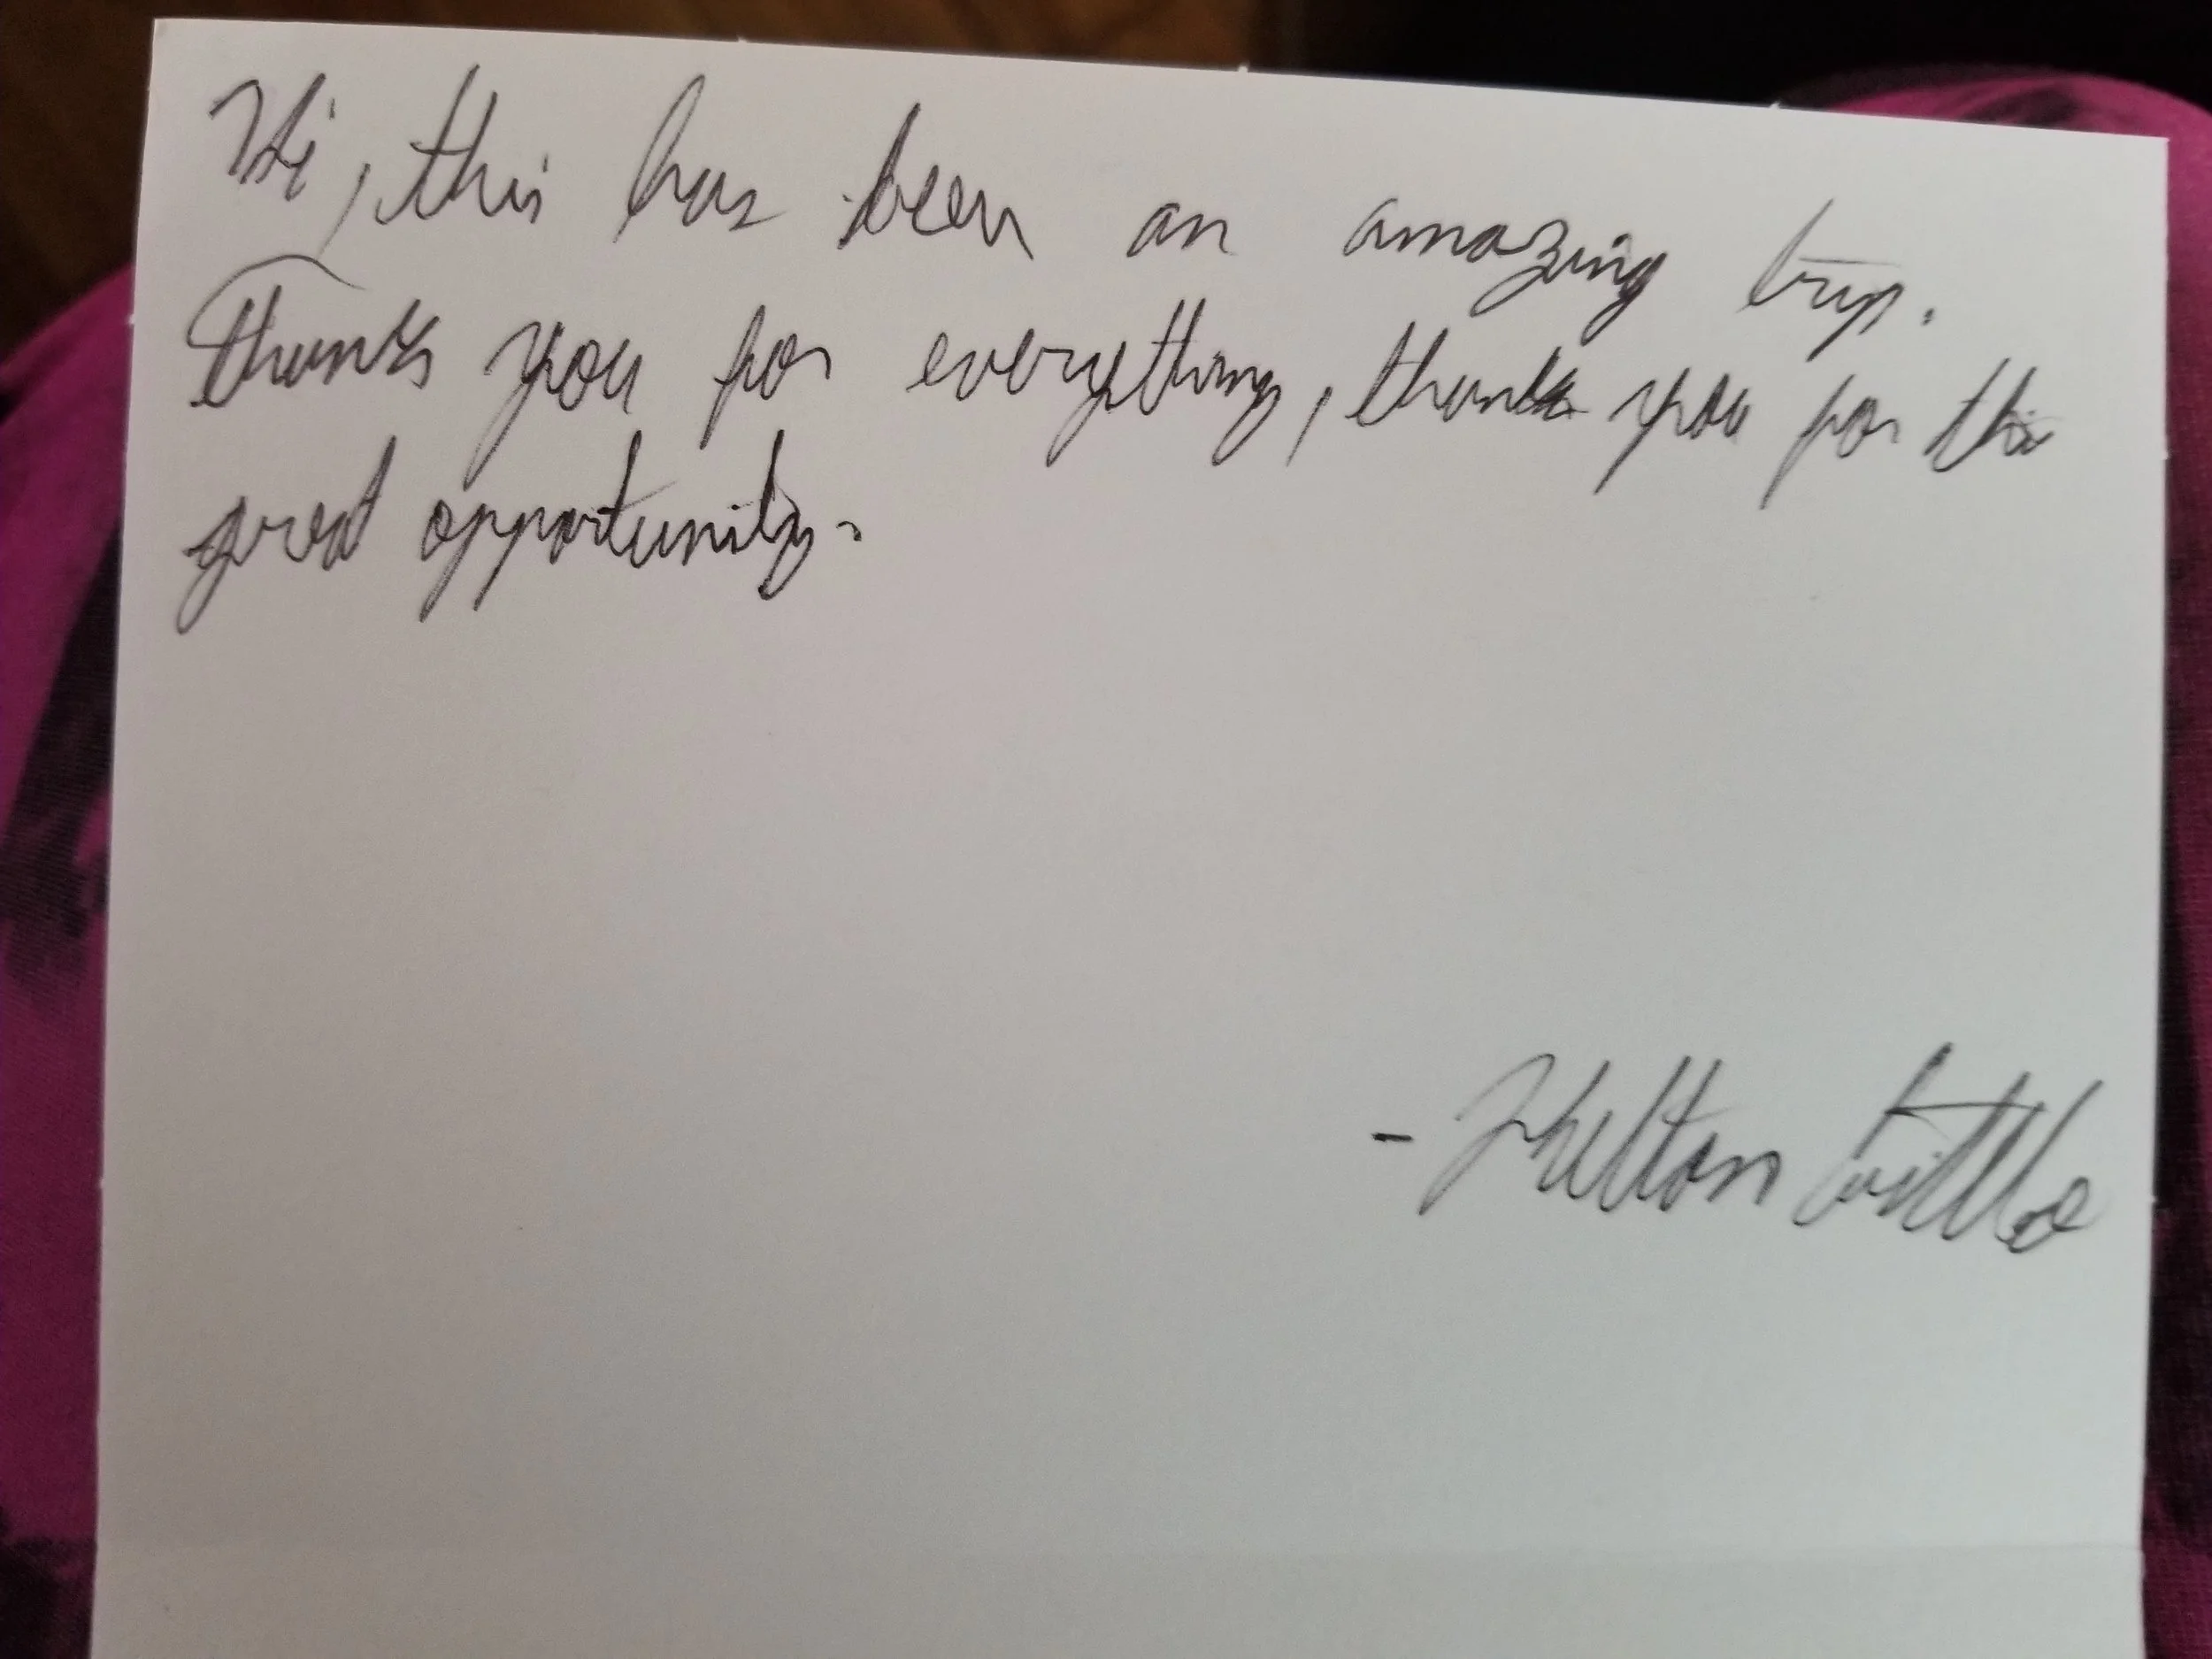 Hi, this has been an amazing trip.
Thanks you for everything, thank you for this
great opportunity.